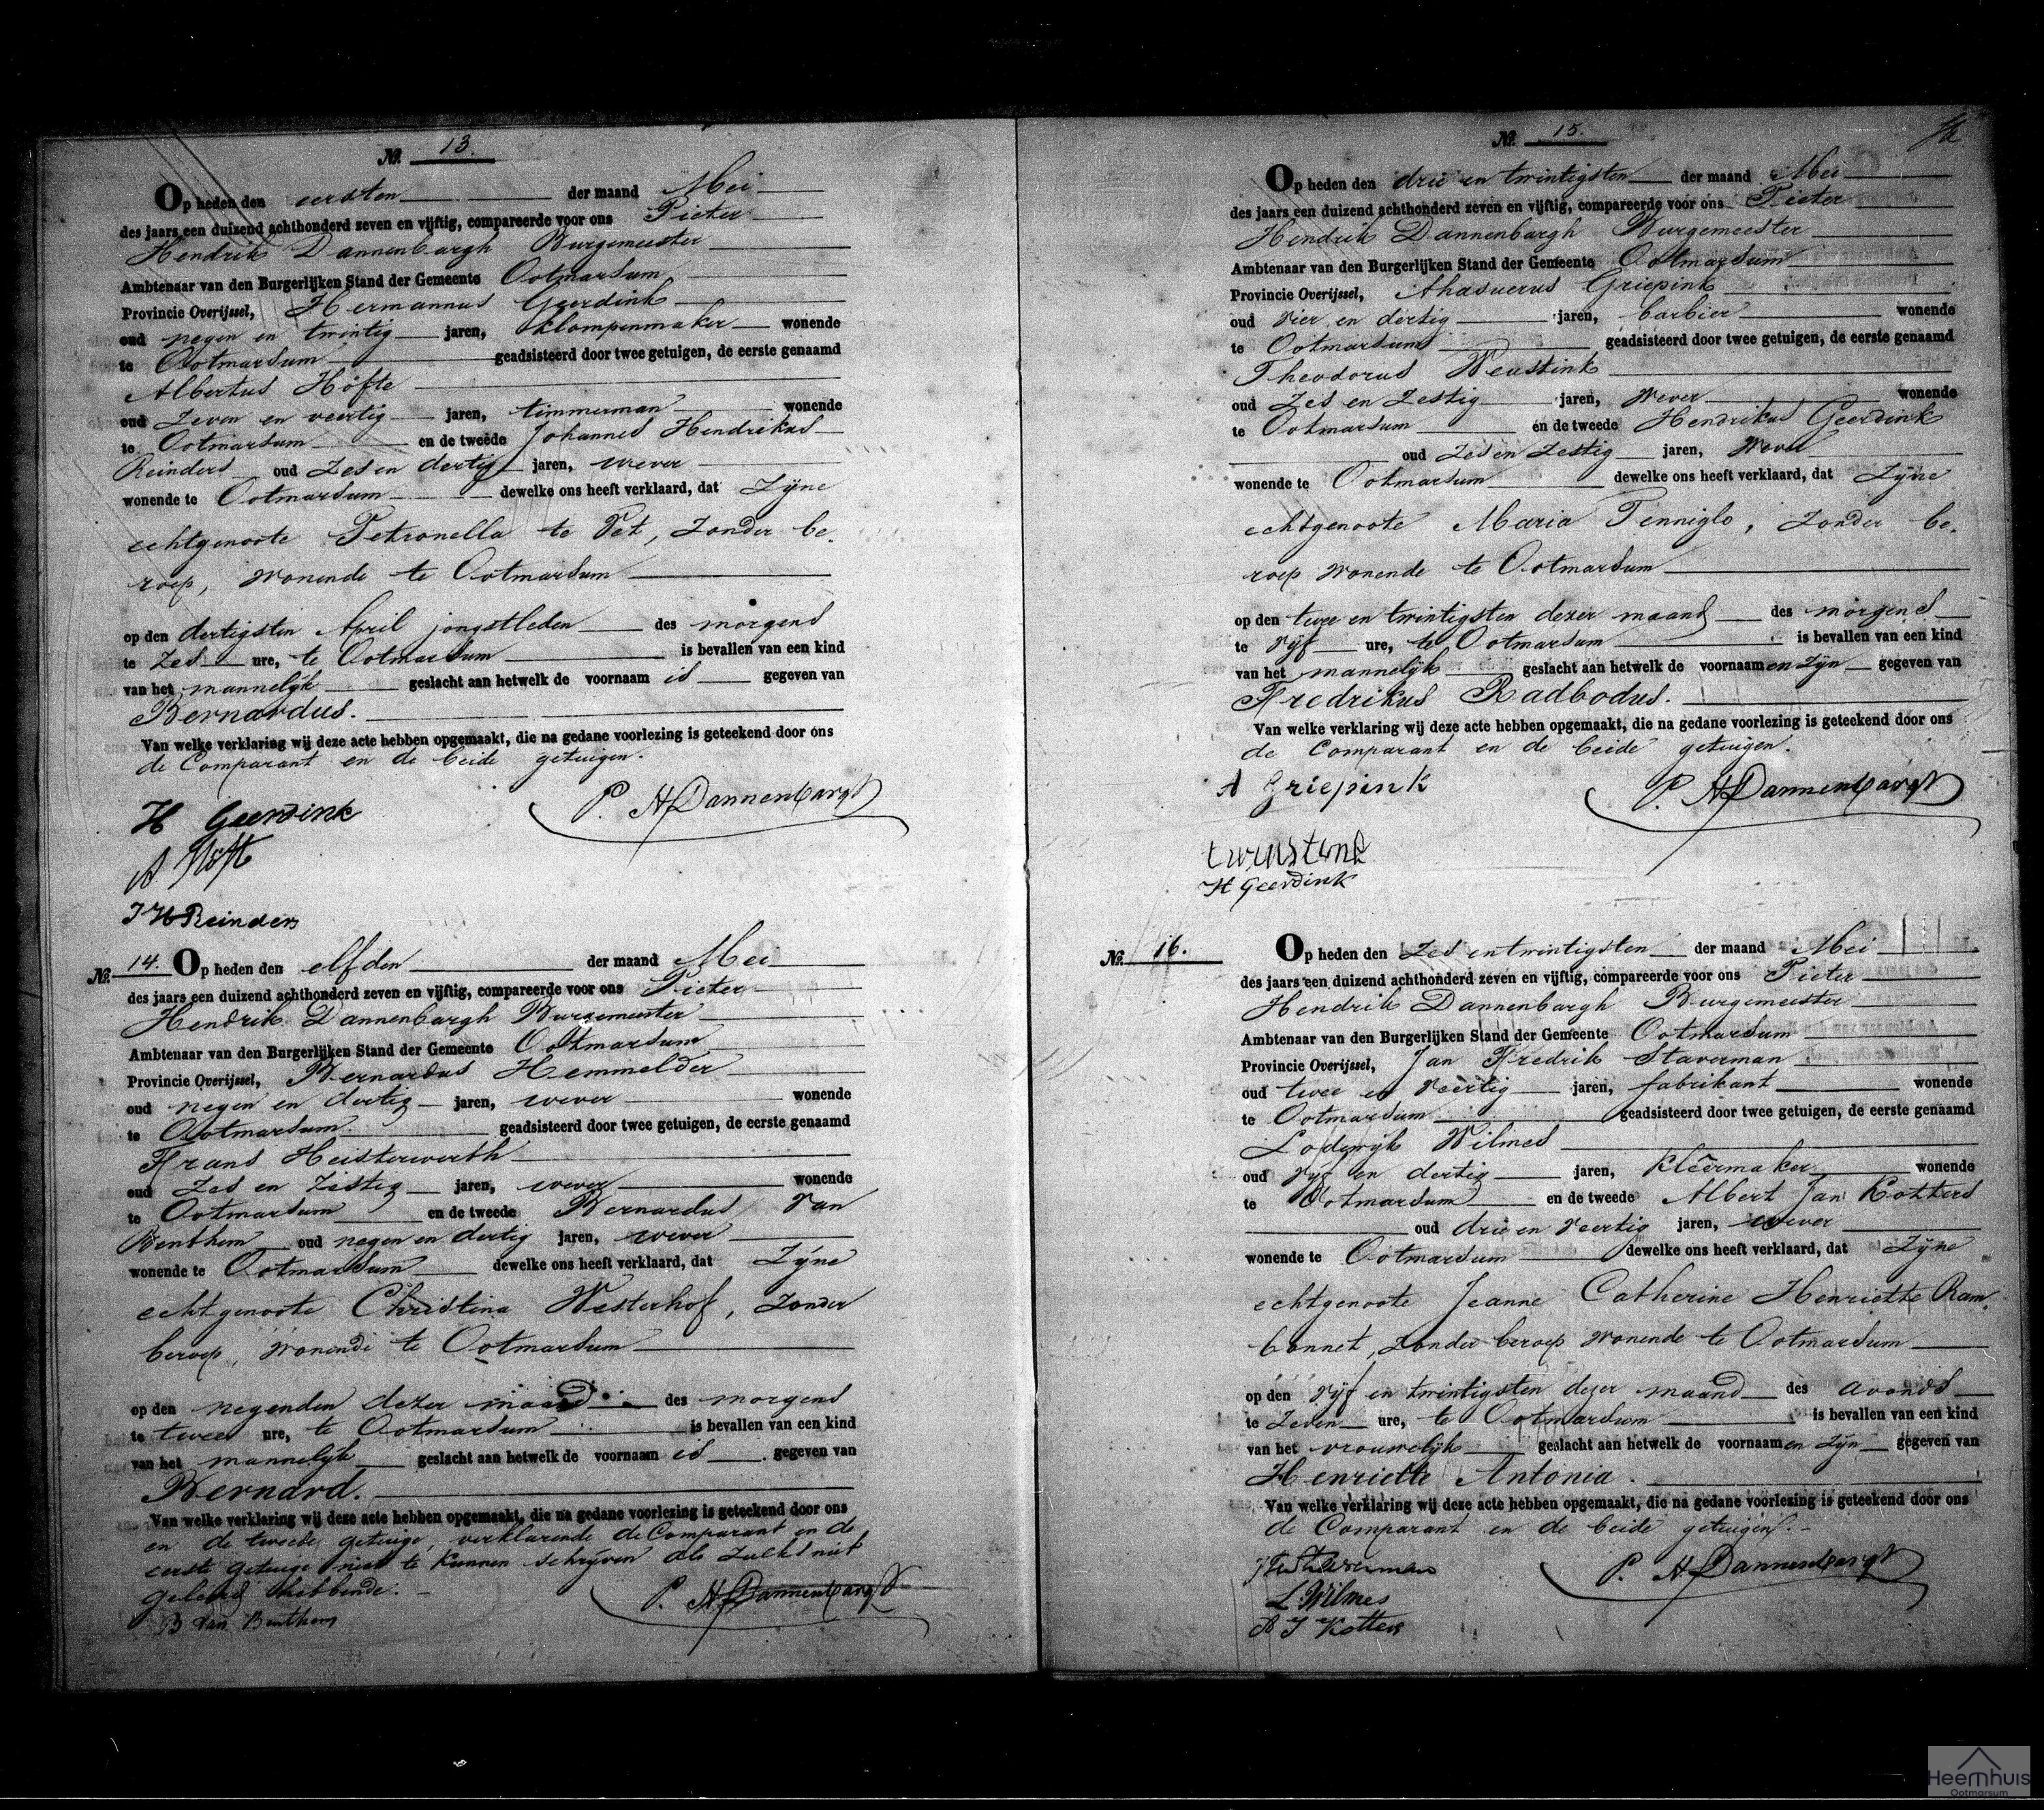 No. 13.
Op heden den eersten der maand Mei
des jaars een duizend achthonderd zeven en vijftig, compareerde voor ons Pieter
Hendrik Dannenbargh Burgemeester
Ambtenaar van den Burgerlijken Stand der Gemeente Ootmarsum
Provincie Overijssel, Hermannus Geerdink
oud negen en twintig jaren, klompenmaker wonende
te Ootmarsum geadsisteerd door twee getuigen, de eerste genaamd
Albertus Höfte
oud zeven en veertig jaren, timmerman wonende
te Ootmarsum en de tweede Johannes Hendrikus
Reinders oud zes en dertig jaren, wever
wonende te Ootmarsum dewelke ons heeft verklaard, dat zijne
echtgenoote Petronella te Pet, zonder be-
roep, wonende te Ootmarsum
op den dertigsten April jongstleden des morgens
te zes ure, te Ootmarsum is bevallen van een kind
van het mannelijk geslacht aan hetwelk de voornaam is gegeven van
Bernardus.
Van welke verklaring wij deze acte hebben opgemaakt, die na gedane voorlezing is geteekend door ons
de Comparant en de beide getuigen.
H Geerdink P. H Dannenbargh
A Höft
J H Reinders
No. 14. Op heden den elfden der maand Mei
des jaars een duizend achthonderd zeven en vijftig, compareerde voor ons Pieter
Hendrik Dannenbargh Burgemeester
Ambtenaar van den Burgerlijken Stand der Gemeente Ootmarsum
Provincie Overijssel, Bernardus Hemmelder
oud negen en dertig jaren, wever wonende
te Ootmarsum geadsisteerd door twee getuigen, de eerste genaamd
Frans Heisterwerth
oud zes en zestig jaren, wever wonende
te Ootmarsum en de tweede Bernardus van
Benthem oud negen en dertig jaren, wever
wonende te Ootmarsum dewelke ons heeft verklaard, dat zijne
echtgenoote Christina Westerhof, zonder
beroep, wonende te Ootmarsum
op den negenden dezer maand des morgens
te twee ure, te Ootmarsum is bevallen van een kind
van het mannelijk geslacht aan hetwelk de voornaam is gegeven van
Bernard.
Van welke verklaring wij deze acte hebben opgemaakt, die na gedane voorlezing is geteekend door ons
en de tweede getuige, verklarende de Comparant en de
eerste getuige niet te kunnen schrijven als zulks niet
geleerd hebbende.
B van Benthem P. H Dannenbargh
No. 15.
Op heden den drie en twintigsten der maand Mei
des jaars een duizend achthonderd zeven en vijftig, compareerde voor ons Pieter
Hendrik Dannenbargh Burgemeester
Ambtenaar van den Burgerlijken Stand der Gemeente Ootmarsum
Provincie Overijssel, Ahasuerus Griepink
oud vier en dertig jaren, barbier wonende
te Ootmarsum geadsisteerd door twee getuigen, de eerste genaamd
Theodorus Weustink
oud zes en zestig jaren, wever wonende
te Ootmarsum en de tweede Hendrikus Geerdink
oud zes en zestig jaren, wever
wonende te Ootmarsum dewelke ons heeft verklaard, dat zijne
echtgenoote Maria Tenniglo, zonder be-
roep wonende te Ootmarsum
op den twee en twintigsten dezer maand des morgens
te vijf ure, te Ootmarsum is bevallen van een kind
van het mannelijk geslacht aan hetwelk de voornaamen zijn gegeven van
Fredrikus Radbodus.
Van welke verklaring wij deze acte hebben opgemaakt, die na gedane voorlezing is geteekend door ons
de Comparant en de beide getuigen.
A Griepink P. H Dannenbargh
H Geerdink
No. 16. Op heden den zes en twintigsten der maand Mei
des jaars een duizend achthonderd zeven en vijftig, compareerde voor ons Pieter
Hendrik Dannenbargh Burgemeester
Ambtenaar van den Burgerlijken Stand der Gemeente Ootmarsum
Provincie Overijssel, Jan Fredrik Staverman
oud twee en veertig jaren, fabrikant wonende
te Ootmarsum geadsisteerd door twee getuigen, de eerste genaamd
Lodewijk Wilmes
oud vijf en dertig jaren, kleêrmaker wonende
te Ootmarsum en de tweede Albert Jan Kotters
oud drie en veertig jaren, wever
wonende te Ootmarsum dewelke ons heeft verklaard, dat zijne
echtgenoote Jeanne Catherine Henriette Ram-
bonnet, zonder beroep wonende te Ootmarsum
op den vijf en twintigsten dezer maand des avonds
te zeven ure, te Ootmarsum is bevallen van een kind
van het vrouwelijk geslacht aan hetwelk de voornaamen zijn gegeven van
Henriette Antonia.
Van welke verklaring wij deze acte hebben opgemaakt, die na gedane voorlezing is geteekend door ons
de Comparant en de beide getuigen.
P. H Dannenbargh
L. Wilmes
A J Kotters
Heemhuis
Ootmarsum